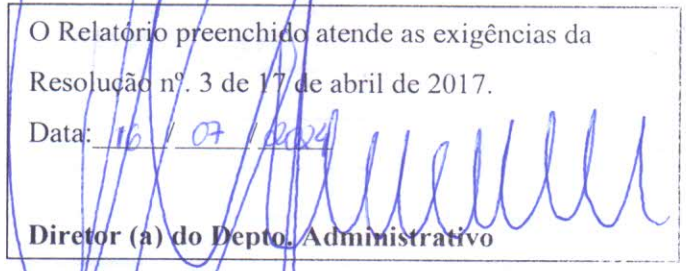 O Relatório preenchido atende as exigências da
Resolução nº. 3 de 17 de abril de 2017.
Data: 16 / 07 / 2024
Diretor (a) do Depto. Administrativo